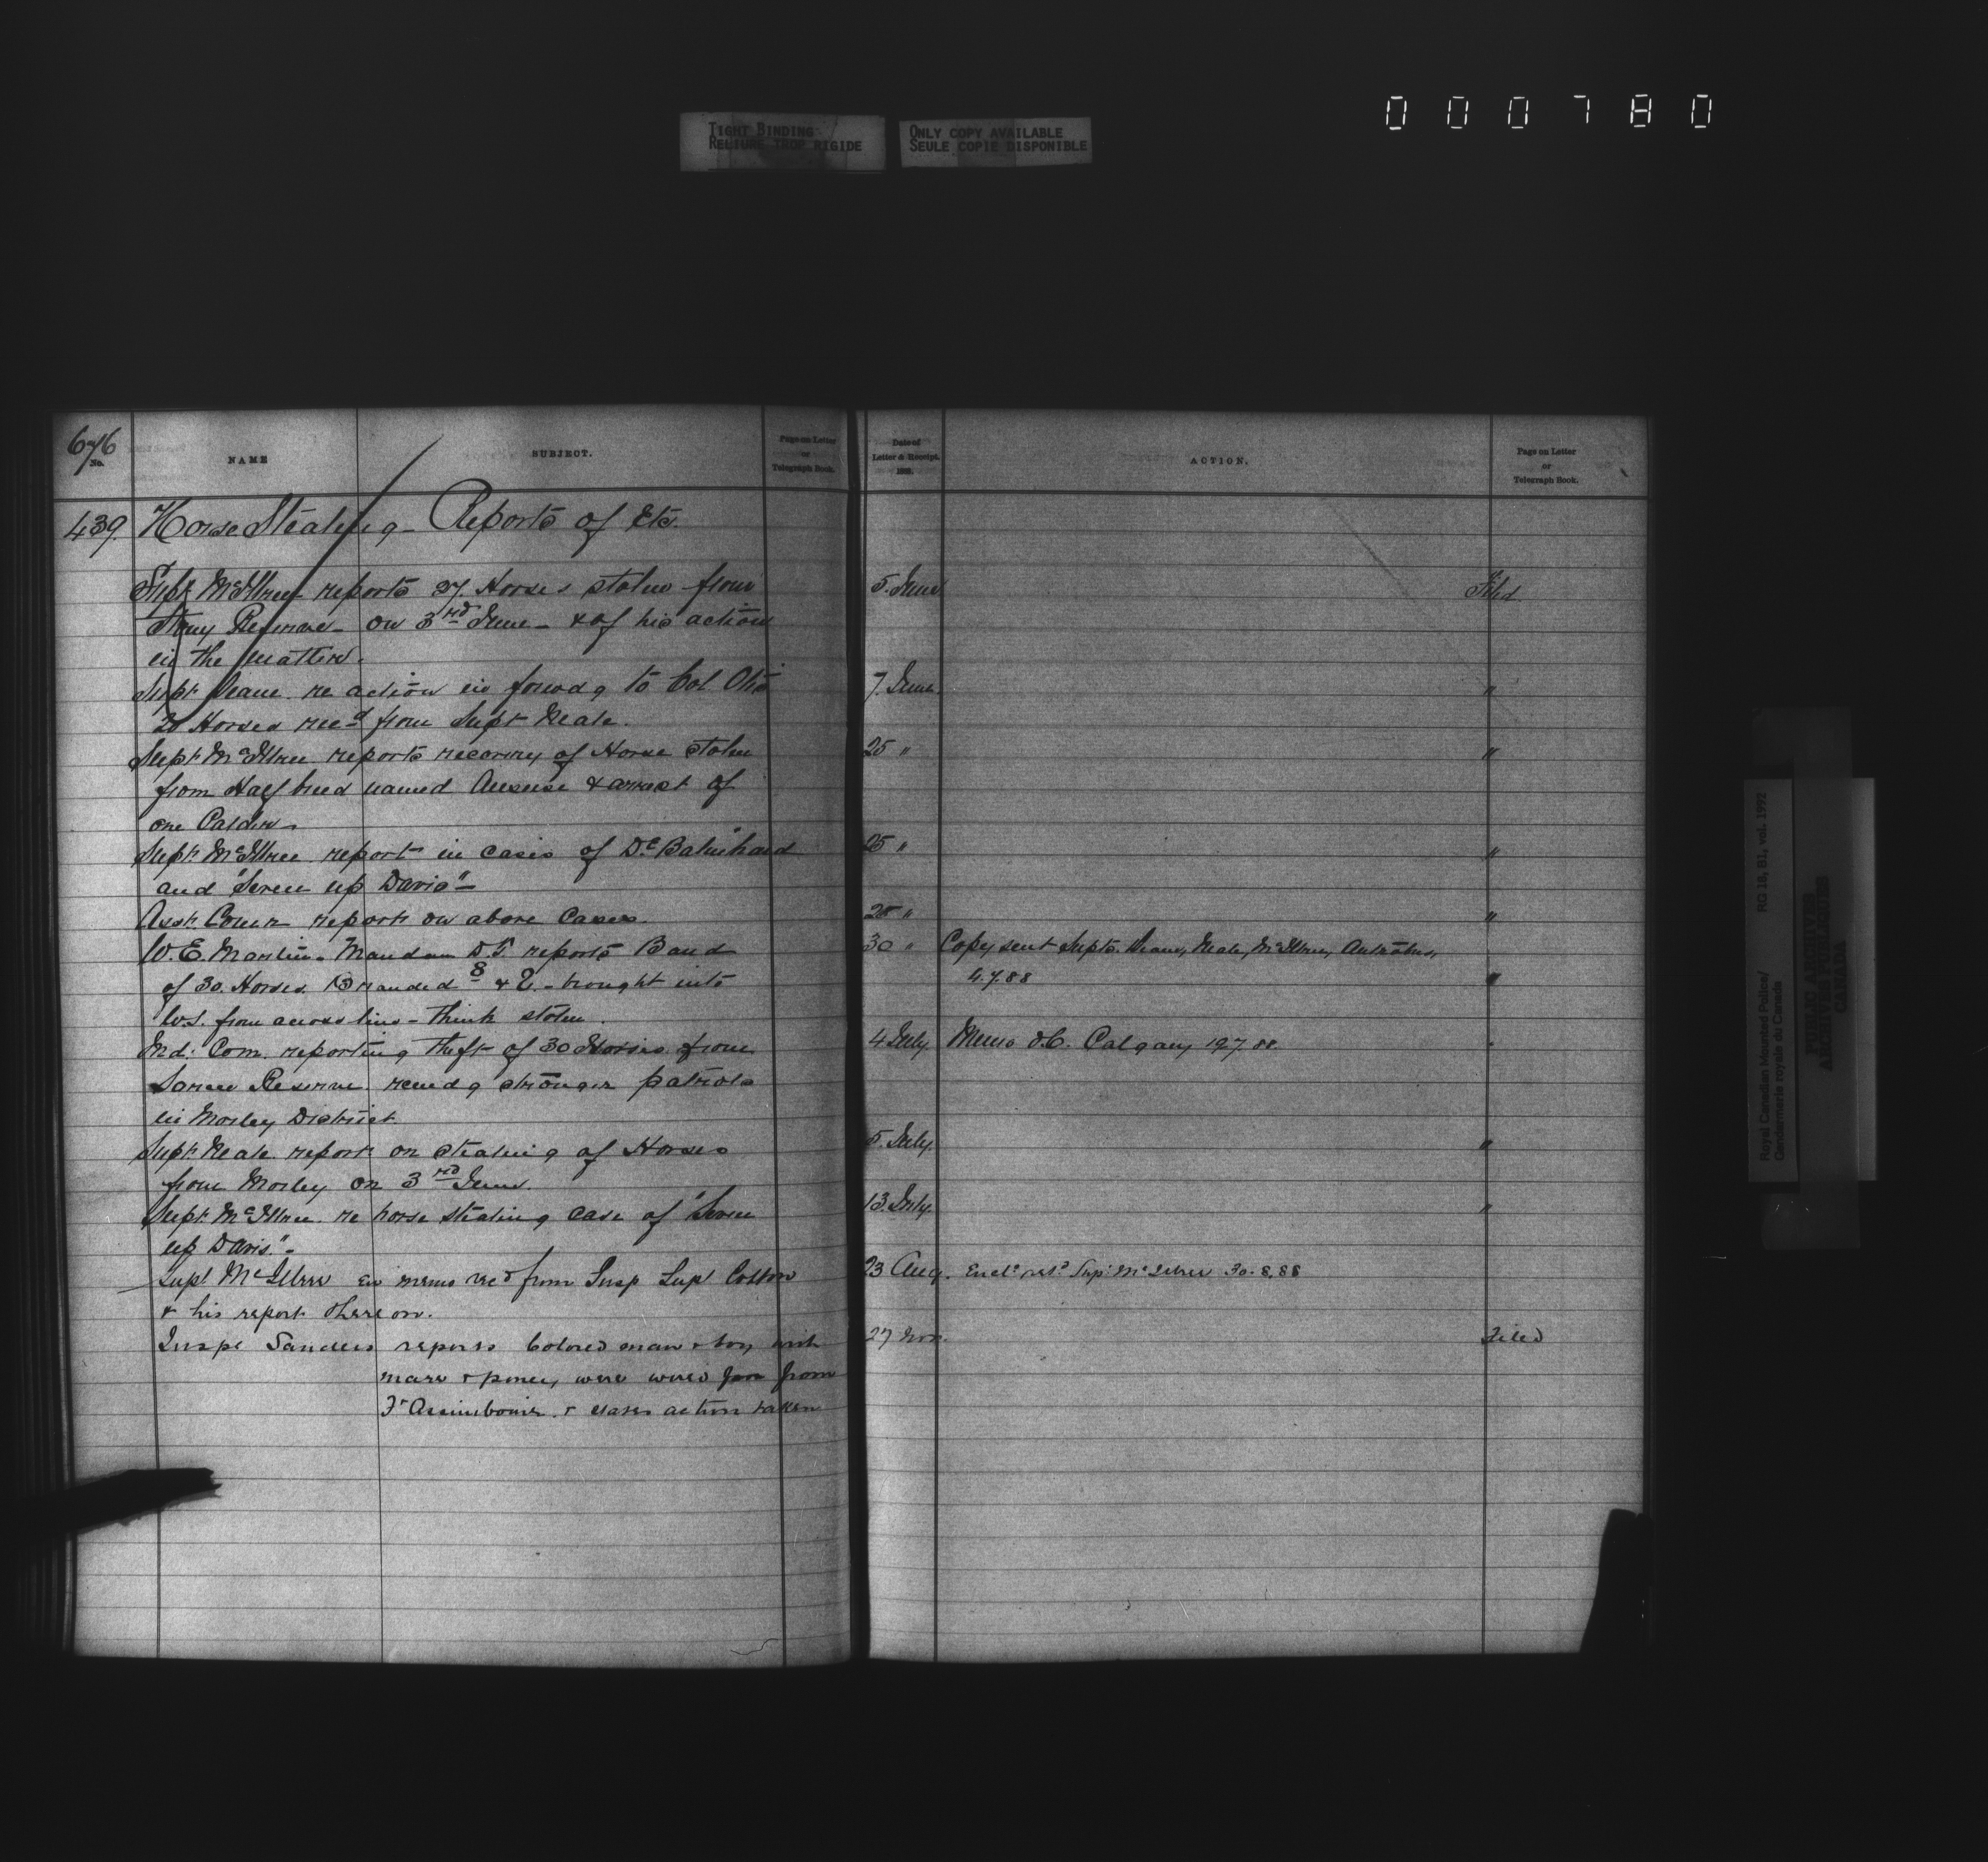 000780
TIGHT BINDING
RELIURE TROP RIGIDE
ONLY COPY AVAILABLE
SEULE COPIE DISPONIBLE
676
No.
NAME
SUBJECT.
Page on Letter
or
Telegraph Book.
Date of
Letter & Receipt.
188
ACTION.
Page on Letter
or
Telegraph Book.
439. Horse Stealing - Reports of Etc.
Supt McIllree reports 27 Horses stolen from 5. June Filed
Stony Reserve - on 3rd June - & of his action
in the matter.
Supt Deane re action in forwdg to Col. Otis 7 June "
20 Horses recd from Supt Neale.
Supt McIllree reports recovery of Horse stolen 25 " "
from Half breed named & arrest of
one Calder
Supt McIllree report in cases of De Balinhard 25 " "
and "Seven up Davis" -
Asst Comr reports on above Cases. 25 " "
W. E. Martin - Mandan D.T. reports Band 30 " Copy sent Supts. Deane, Neale, McIllree, Antrobus,
of 30 Horses Branded 8 & 2 - brought into 4.7.88 "
U.S. from across line - think stolen.
Ind: Com. reporting theft of 30 Horses from 4 July Memo O.C. Calgary 12.7.88. "
Sarcee Reserve recmdg stronger patrols
in Morley District.
Supt Neale report on stealing of Horses 5. July "
from Morley on 3rd June.
Supt McIllree re horse stealing case of "Seven 13. July "
up Davis." -
Supt McIllree memo recd from Insp Supt Cotton 23 Aug. Encls retd Supt McIllree 30.8.88
& his report thereon.
Inspr Sanders reports Colored man & boy with 27 Nov. Filed
mare & poney, were wired for from
Ft Assiniboine & states action taken
Royal Canadian Mounted Police/ RG 18, B1, vol. 1992
Gendarmerie royale du Canada
PUBLIC ARCHIVES
ARCHIVES PUBLIQUES
CANADA